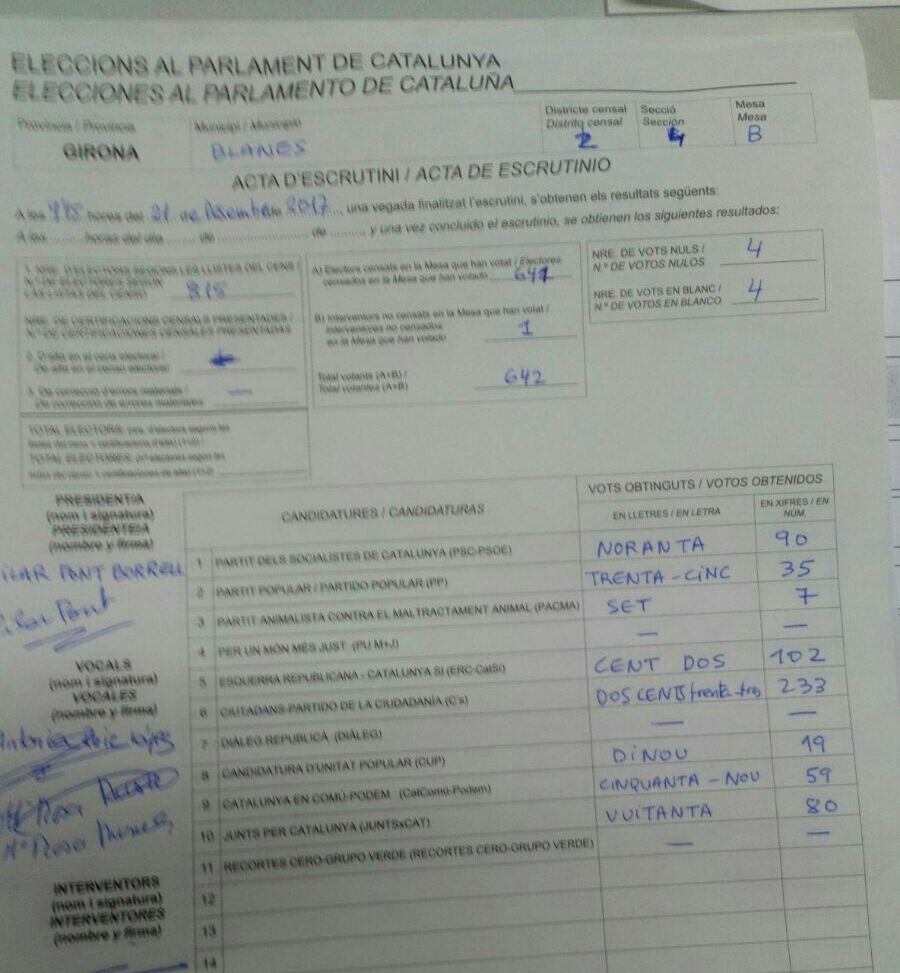 ELECCIONS AL PARLAMENT DE CATALUNYA
ELECCIONES AL PARLAMENTO DE CATALUÑA
Província / Provincia
Municipi / Municipio
Districte censal
Distrito censal
Secció
Sección
Mesa
Mesa
GIRONA
BLANES
2
4
B
ACTA D'ESCRUTINI / ACTA DE ESCRUTINIO
A les hores del 21 de Desembre de 2017, una vegada finalitzat l'escrutini, s'obtenen els resultats següents:
A las horas del día de de , y una vez concluido el escrutinio, se obtienen los siguientes resultados:
1. NRE. D'ELECTORS SEGONS LES LLISTES DEL CENS /
N.º DE ELECTORES SEGÚN
LAS LISTAS DEL CENSO
815
NRE. DE CERTIFICACIONS CENSALS PRESENTADES /
N.º DE CERTIFICACIONES CENSALES PRESENTADAS
2. D'alta en el cens electoral /
De alta en el censo electoral
3. De correcció d'errors materials /
De corrección de errores materiales
—
TOTAL ELECTORS: (nre. d'electors segons les
llistes del cens + certificacions d'alta) (1+2) /
TOTAL ELECTORES: (n.º electores según las
listas del censo + certificaciones de alta) (1+2)
A) Electors censats en la Mesa que han votat / Electores
censados en la Mesa que han votado
641
B) Interventors no censats en la Mesa que han votat /
Interventores no censados
en la Mesa que han votado
1
Total votants (A+B) /
Total votantes (A+B)
642
NRE. DE VOTS NULS /
N.º DE VOTOS NULOS
4
NRE. DE VOTS EN BLANC /
N.º DE VOTOS EN BLANCO
4
PRESIDENT/A
(nom i signatura)
PRESIDENTE/A
(nombre y firma)
PILAR PONT BORRELL
Pilar Pont
VOCALS
(nom i signatura)
VOCALES
(nombre y firma)
Mª Rosa
INTERVENTORS
(nom i signatura)
INTERVENTORES
(nombre y firma)
CANDIDATURES / CANDIDATURAS
VOTS OBTINGUTS / VOTOS OBTENIDOS
EN LLETRES / EN LETRA
EN XIFRES / EN
NÚM.
1 PARTIT DELS SOCIALISTES DE CATALUNYA (PSC-PSOE) NORANTA 90
2 PARTIT POPULAR / PARTIDO POPULAR (PP) TRENTA-CINC 35
3 PARTIT ANIMALISTA CONTRA EL MALTRACTAMENT ANIMAL (PACMA) SET 7
4 PER UN MÓN MÉS JUST (PUM+J) — —
5 ESQUERRA REPUBLICANA - CATALUNYA SÍ (ERC-CatSí) CENT DOS 102
6 CIUTADANS-PARTIDO DE LA CIUDADANÍA (C's) DOS CENTS trenta-tres 233
7 DIÀLEG REPUBLICÀ (DIÀLEG) — —
8 CANDIDATURA D'UNITAT POPULAR (CUP) DINOU 19
9 CATALUNYA EN COMÚ-PODEM (CatComú-Podem) CINQUANTA-NOU 59
10 JUNTS PER CATALUNYA (JUNTSxCAT) VUITANTA 80
11 RECORTES CERO-GRUPO VERDE (RECORTES CERO-GRUPO VERDE) — —
12
13
14